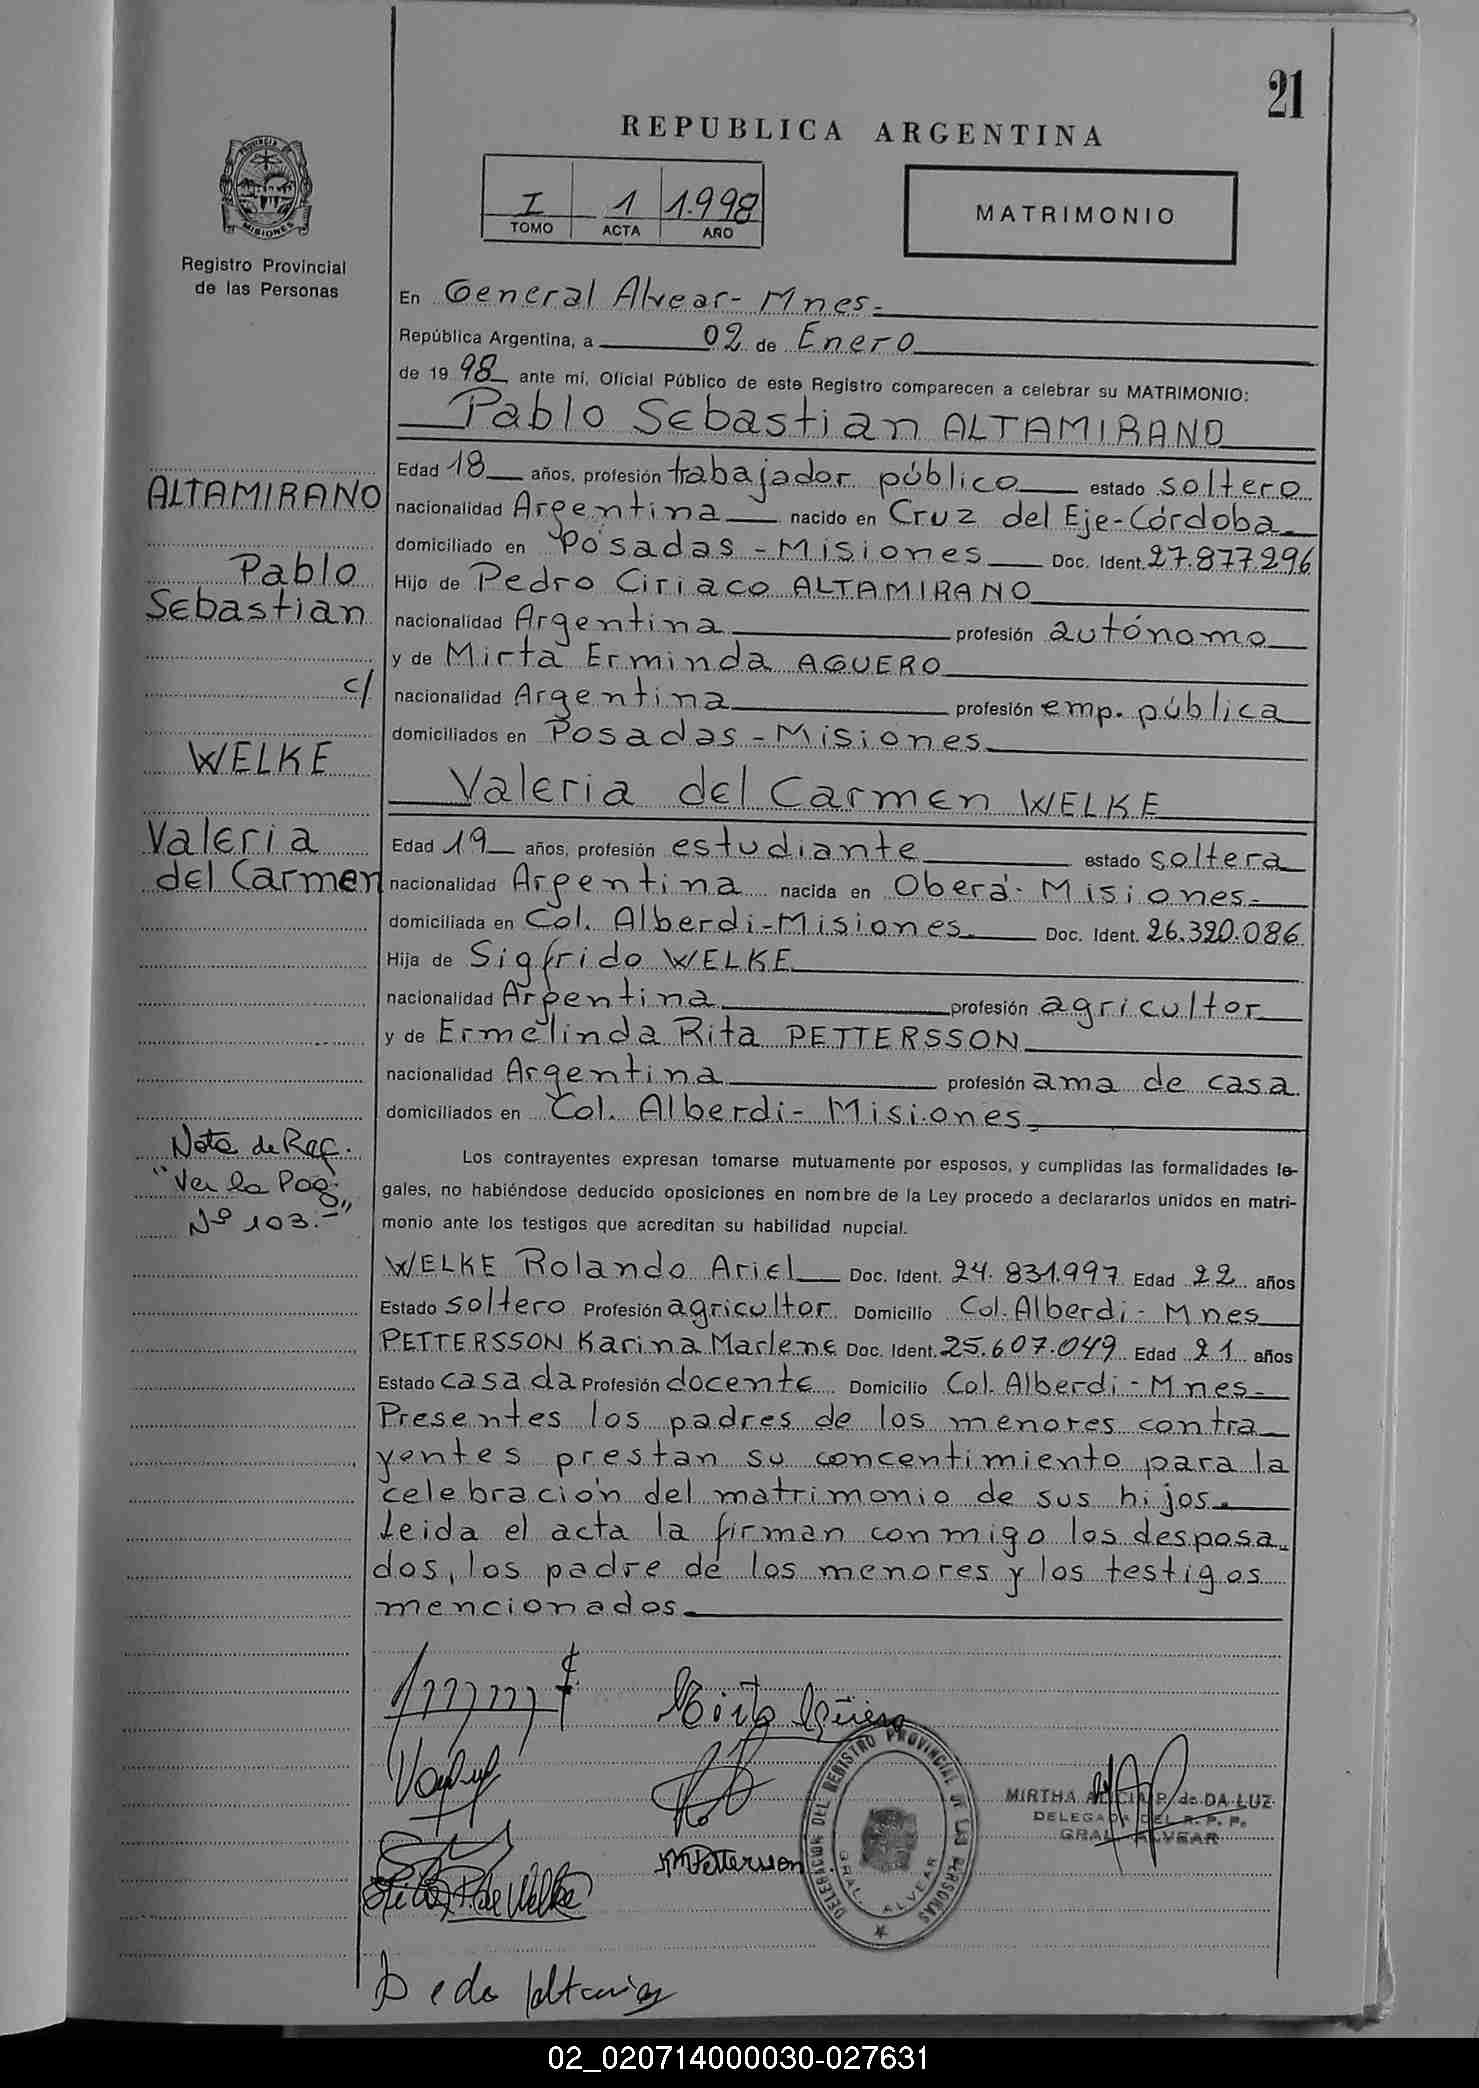 21
REPUBLICA ARGENTINA
PROVINCIA DE
MISIONES
Registro Provincial
de las Personas
I 1 1.998
TOMO ACTA AÑO
MATRIMONIO
En General Alvear - Mnes -
República Argentina, a 02 de Enero
de 19 98 ante mí, Oficial Público de este Registro comparecen a celebrar su MATRIMONIO:
Pablo Sebastian ALTAMIRANO
Edad 18 años, profesión trabajador público estado soltero
nacionalidad Argentina nacido en Cruz del Eje-Córdoba
domiciliado en Posadas - Misiones Doc. Ident. 27.877.296
Hijo de Pedro Ciriaco ALTAMIRANO
nacionalidad Argentina profesión autónomo
y de Mirta Erminda AGUERO
nacionalidad Argentina profesión emp. pública
domiciliados en Posadas - Misiones
Valeria del Carmen WELKE
Edad 19 años, profesión estudiante estado soltera
nacionalidad Argentina nacida en Oberá - Misiones -
domiciliada en Col. Alberdi - Misiones. Doc. Ident. 26.320.086
Hija de Sigfrido WELKE
nacionalidad Argentina profesión agricultor
y de Ermelinda Rita PETTERSSON
nacionalidad Argentina profesión ama de casa
domiciliados en Col. Alberdi - Misiones
Los contrayentes expresan tomarse mutuamente por esposos, y cumplidas las formalidades le-
gales, no habiéndose deducido oposiciones en nombre de la Ley procedo a declararlos unidos en matri-
monio ante los testigos que acreditan su habilidad nupcial.
WELKE Rolando Ariel Doc. Ident. 24.831.997 Edad 22 años
Estado soltero Profesión agricultor Domicilio Col. Alberdi - Mnes
PETTERSSON Karina Marlene Doc. Ident. 25.607.049 Edad 21 años
Estado casada Profesión docente Domicilio Col. Alberdi - Mnes -
Presentes los padres de los menores contra
yentes prestan su concentimiento para la
celebración del matrimonio de sus hijos.
Leida el acta la firman conmigo los desposa-
dos, los padre de los menores y los testigos
mencionados.
ALTAMIRANO
Pablo
Sebastian
c/
WELKE
Valeria
del Carmen
Nota de Ref.
"Ver la Pag.
Nº 103.-"
Mirta Agüero
P. de Welke
M Pettersson
DELEGACION DEL REGISTRO PROVINCIAL DE LAS PERSONAS
GRAL. ALVEAR
MIRTHA ALICIA P. de DA LUZ
DELEGADA DEL R. P. P.
GRAL. ALVEAR
02_020714000030-027631